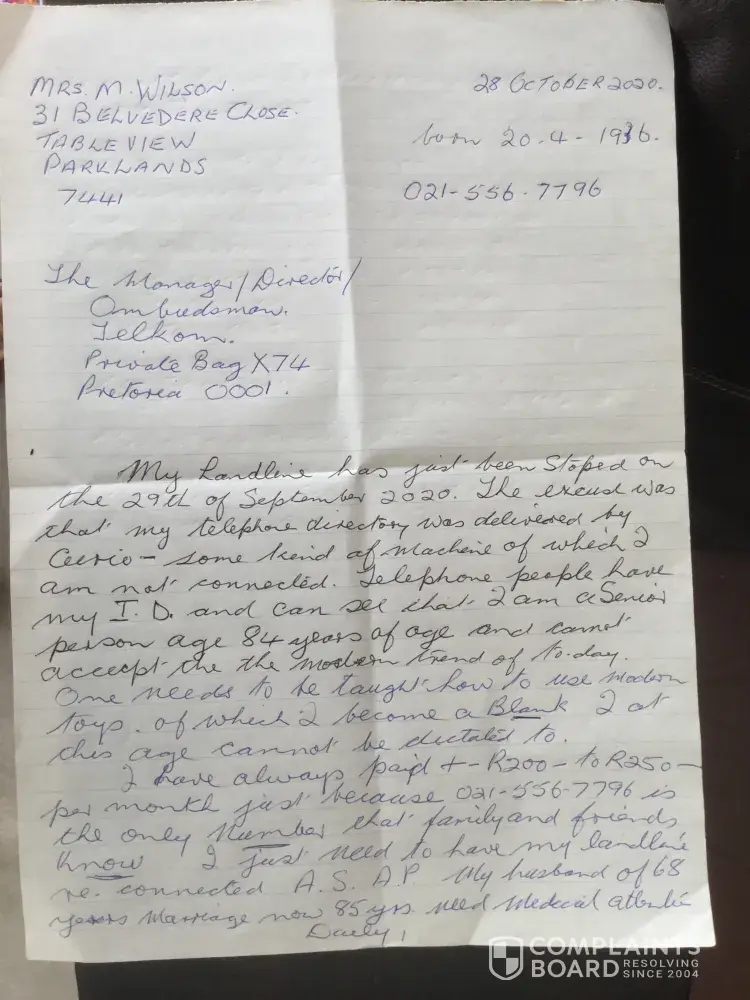 MRS. M. WILSON.
28 OCTOBER 2020.
31 BELVEDERE CLOSE.
TABLE VIEW
born 20.4-1936.
PARKLANDS
021-556-7796
7441
The Manager/Director/
Ombudsman.
Telkom.
Private Bag X74
Pretoria 0001.
My Landline has just been Stoped on
the 29th of September 2020. The excuse was
that my telephone directory was delivered by
- some kind of Machine of which I
am not connected. Telephone people have
my I.D. and can see that I am a Senior
person age 84 years of age and cannot
accept the the modern trend of to-day.
One needs to be taught how to use modern
toys. of which I become a Blank I at
this age cannot be dictated to.
I have always paid +- R200- to R250-
per month just because 021-556-7796 is
the only Number that family and friends
Know I just need to have my landline
re-connected A.S.A.P. My husband of 68
years Marriage now 85 yrs. need Medical
Daily!
COMPLAINTS
BOARD RESOLVING
SINCE 2004